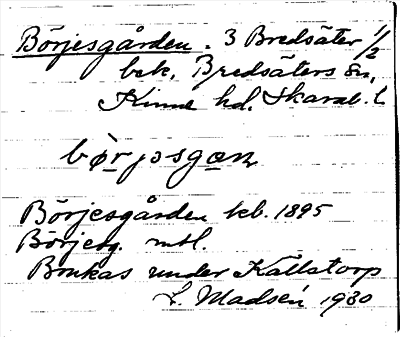 Börjesgården. 3 Bredsäter 1/2
bek, Bredsäters sn,
Kinne hd. Skarab. l.
börjsgan
Börjesgården kb. 1895
Börjesg. mtl.
Brukas under Källstorp
L. Madsén 1930